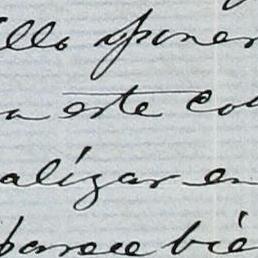 llo poner
a este co
alizar en
parece bie